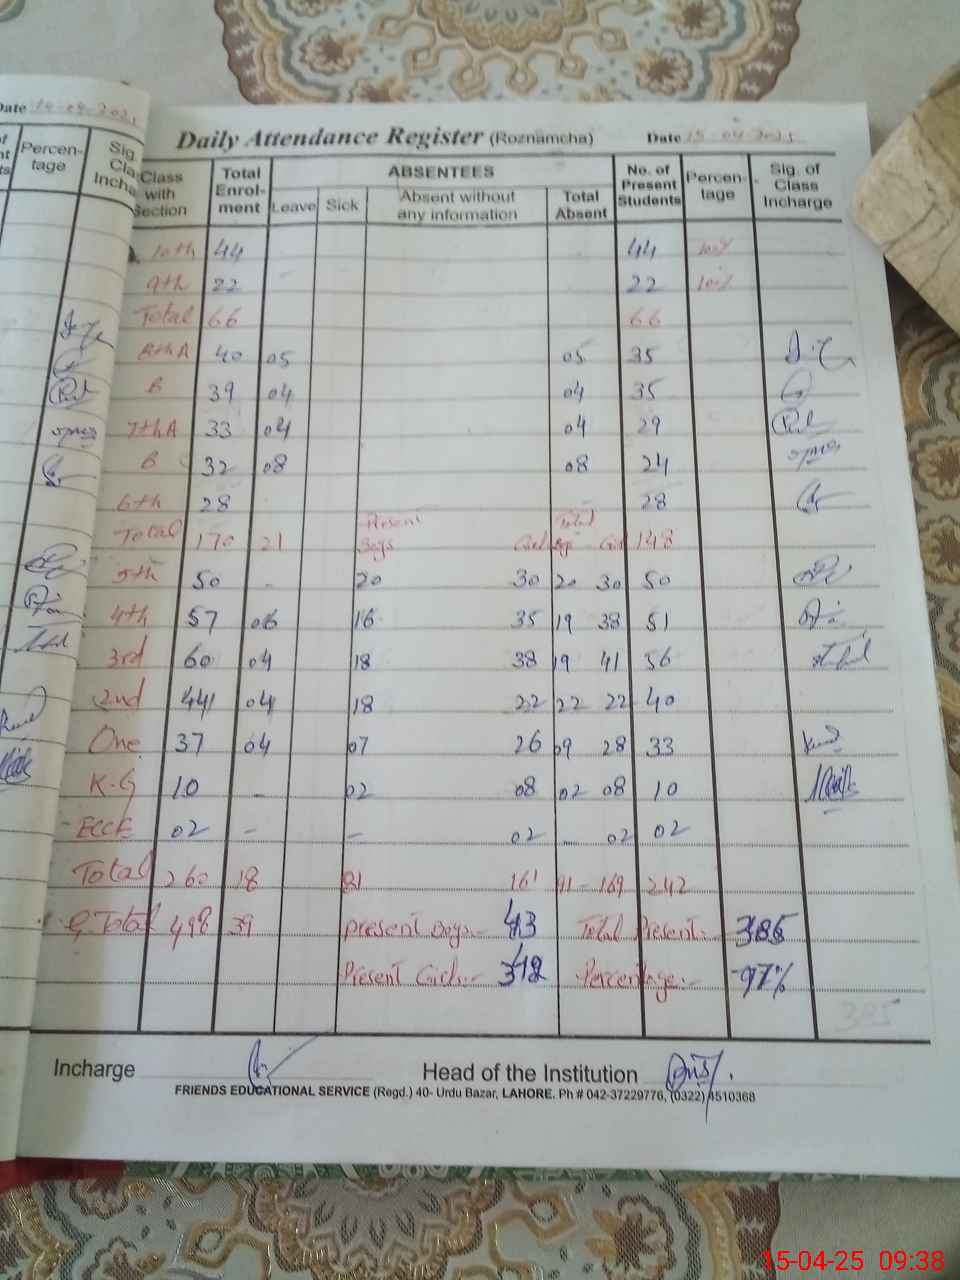 Date 14-04-2025
Percen-
tage
Daily Attendance Register (Roznamcha) Date 15-04-2025
Class with Section Total Enrol-ment ABSENTEES No. of Present Students Percen-tage Sig. of Class Incharge
Leave Sick Absent without any information Total Absent
10th 44 44 100%
9th 22 22 100%
Total 66 66
8thA 40 05 05 35
B 39 04 04 35
7thA 33 04 04 29
B 32 08 08 24
6th 28 - 28
Total 170 21 Present Boys Girls Total Boys Girls 148
5th 50 - 20 30 20 30 50
4th 57 06 16 35 19 38 51
3rd 60 04 18 38 19 41 56
2nd 44 04 18 22 22 22 40
One 37 04 07 26 09 28 33
K.G 10 - 02 08 02 08 10
ECCE 02 - - 02 - 02 02
Total 260 18 81 161 91 - 169 242
G.Total 498 39 Present Boys:- 43 Total Present:- 385
Present Girls:- Percentage:- 97%
385
Incharge Head of the Institution
FRIENDS EDUCATIONAL SERVICE (Regd.) 40- Urdu Bazar, LAHORE. Ph # 042-37229776, (0322) 4510368
15-04-25 09:38